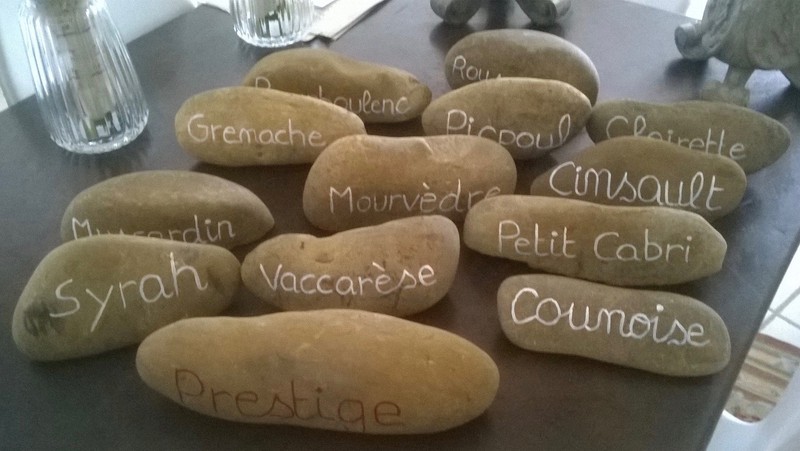 Rou
boulenc
Grenache
Picpoul
Clairette
Cinsault
Mourvèdre
Muscardin
Petit Cabri
Syrah
Vaccarèse
Counoise
Prestige